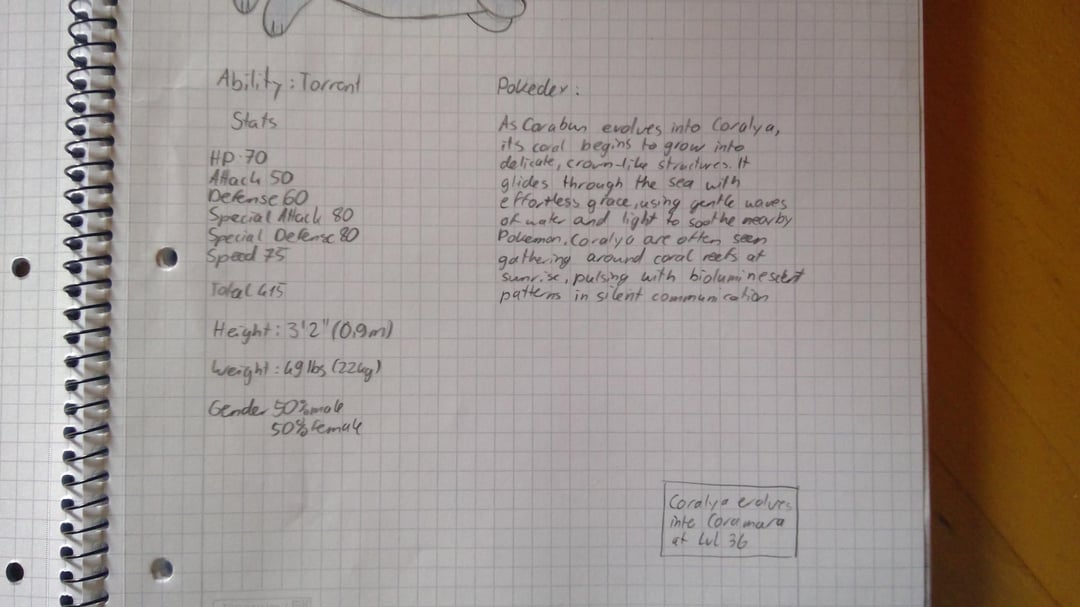 Ability: Torrent
Stats
HP 70
Attack 50
Defense 60
Special Attack 80
Special Defense 80
Speed 75
Total 415
Height: 3'2" (0,9m)
Weight: 49 lbs (22kg)
Gender 50% male
50% Female
Pokedex:
As Corabun evolves into Coralya,
its coral begins to grow into
delicate, crown-like structures. It
glides through the sea with
effortless grace, using gentle waves
of water and light to soothe nearby
Pokemon. Coralya are often seen
gathering around coral reefs at
sunrise, pulsing with
patterns in silent communication
Coralya evolves
into Coramara
at Lvl 36